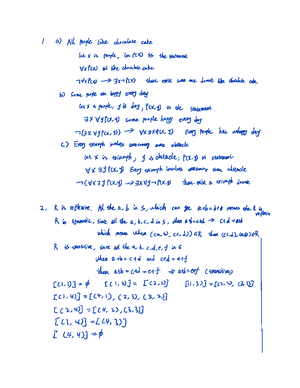 1. a) All people like chocolate cake
let x is people, let P(x) is the statement
∀x P(x) all like chocolate cake
¬∀x P(x) → ∃x ¬P(x) there exist some one doesn't like chocolate cake.
b) Some people are happy every day
let x is people, y is day, P(x,y) is the statement.
∃x ∀y P(x,y) some people happy every day
¬(∃x ∀y P(x,y)) → ∀x ∃y ¬P(x,y) Every people has unhappy day
c) Every triumph involves overcoming some obstacle
let x is triumph, y is obstacle, P(x,y) is statement
∀x ∃y P(x,y) Every triumph involves overcoming some obstacle.
¬(∀x ∃y P(x,y)) → ∃x ∀y ¬P(x,y) there exist a triumph
2. R is reflexive. All the a, b in S, which can get a+b = b+a means the R is reflexive
R is symmetric, since all the a, b, c, d in S, when a+b = c+d → c+d = a+b
which means when ((a,b),(c,d)) ∈ R then ((c,d),(a,b)) ∈ R
R is transitive, since all the a, b, c, d, e, f in S
when a+b = c+d and c+d = e+f
then a+b = c+d = e+f ⇒ a+b = e+f (transitive)
[(1,1)] = ∅ [(1,2)] = [(2,1)] [(1,3)] = [(2,2), (3,1)]
[(1,4)] = [(4,1), (2,3), (3,2)]
[(2,4)] = [(4,2), (3,3)]
[(3,4)] = [(4,3)]
[(4,4)] = ∅